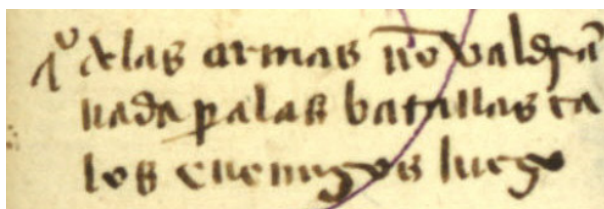 q̃ las armas nõ valdrã
nada p̱a las batallas ca
los enemigos luego